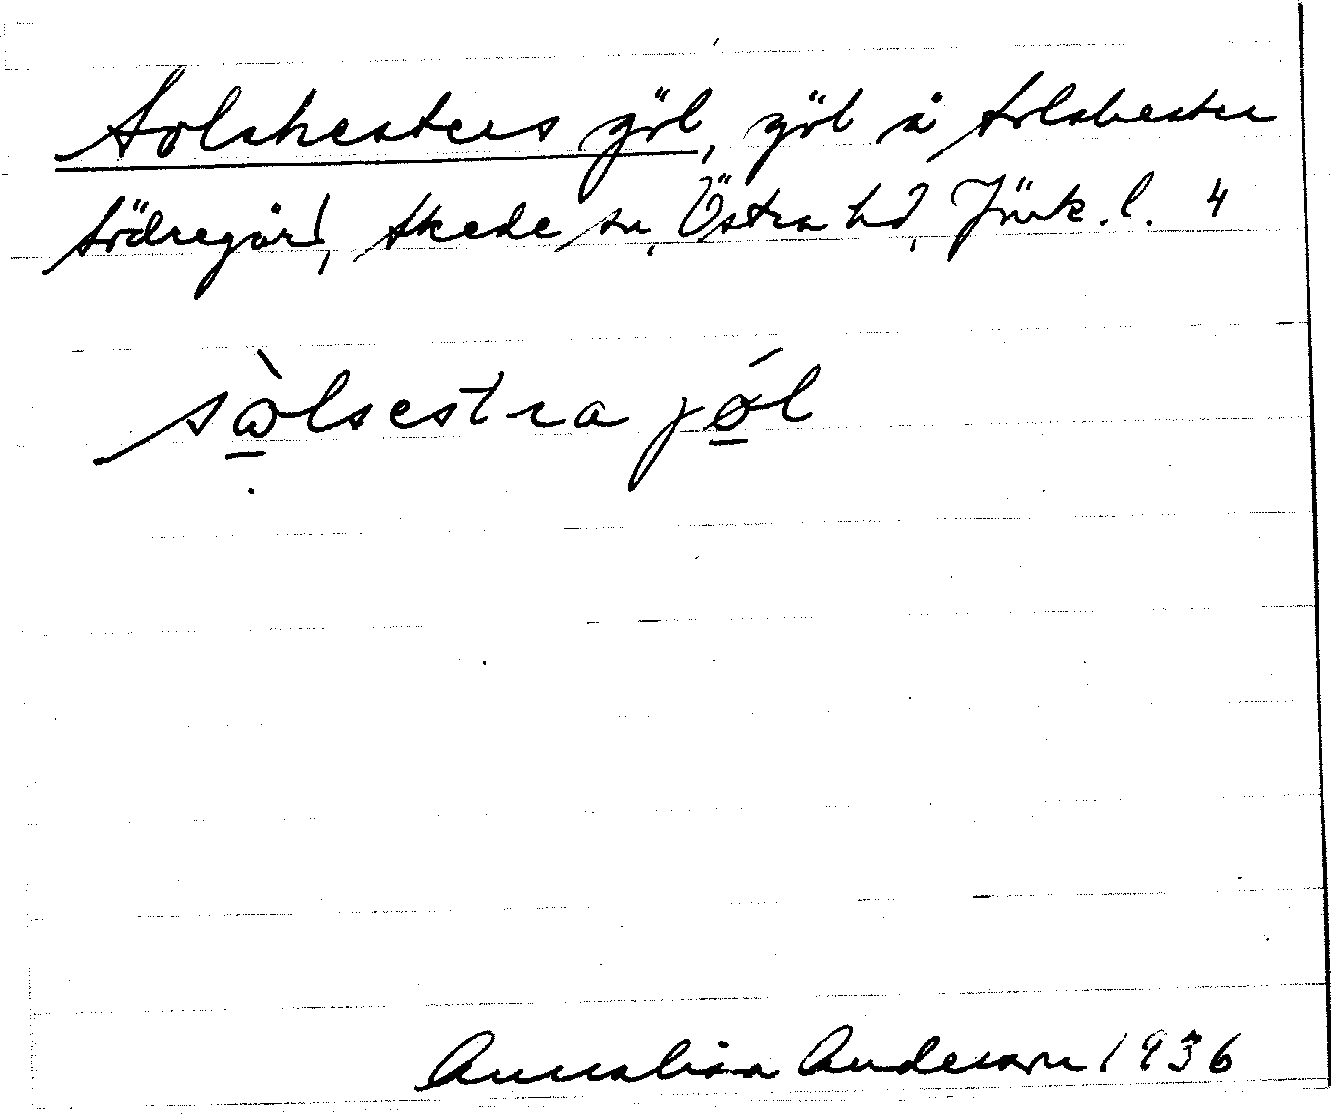 Solshesters göl, göl å Solshester
Södregård, Skede sn, Östra hd, Jönk. l. 4
sò̲lsestra jǿ̲l
Annalisa Anderson 1936